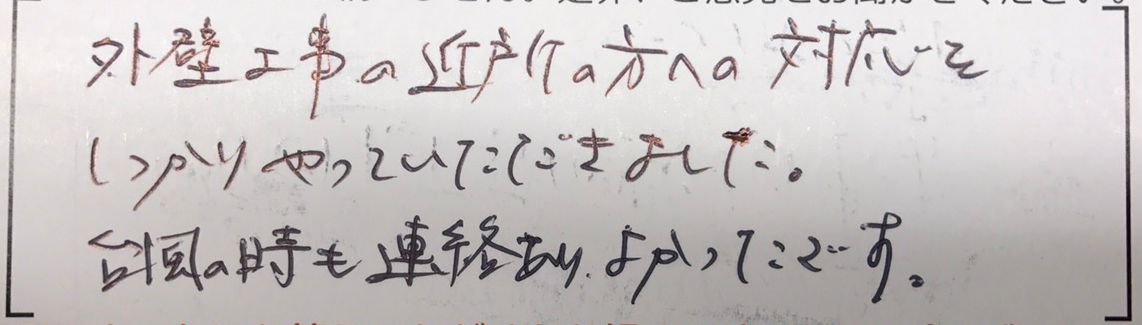 外壁工事の近所の方への対応を
しっかりやっていただきました。
台風の時も連絡あり、よかったです。